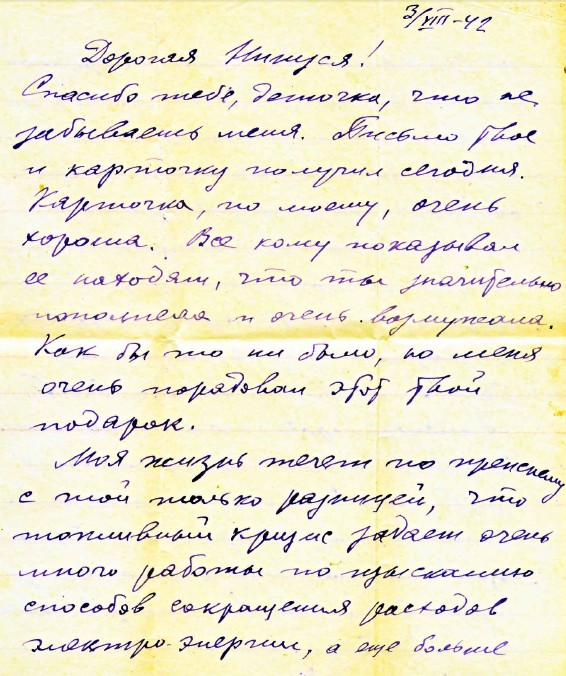 3/VIII-42
Дорогая Нинуся!
Спасибо тебе, деточка, что не
забываешь меня. Письмо твое
и карточку получил сегодня.
Карточка, по моему, очень
хороша. Все кому показывал
ее находят, что ты значительно
пополнела и очень возмужала.
Как бы то ни было, но меня
очень порадовал этот твой
подарок.
Моя жизнь течет по прежнему
с той только разницей, что
топливный кризис задает очень
много работы по изысканию
способов сокращения расходов
электро-энергии, а еще больше